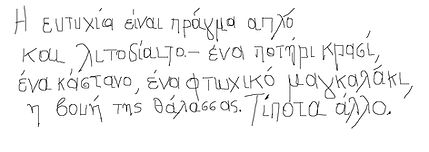 Η ευτυχία είναι πράγμα απλό
και λιτοδίαιτο – ένα ποτήρι κρασί,
ένα κάστανο, ένα φτωχικό μαγκαλάκι,
η βουή της θάλασσας. Τίποτα άλλο.